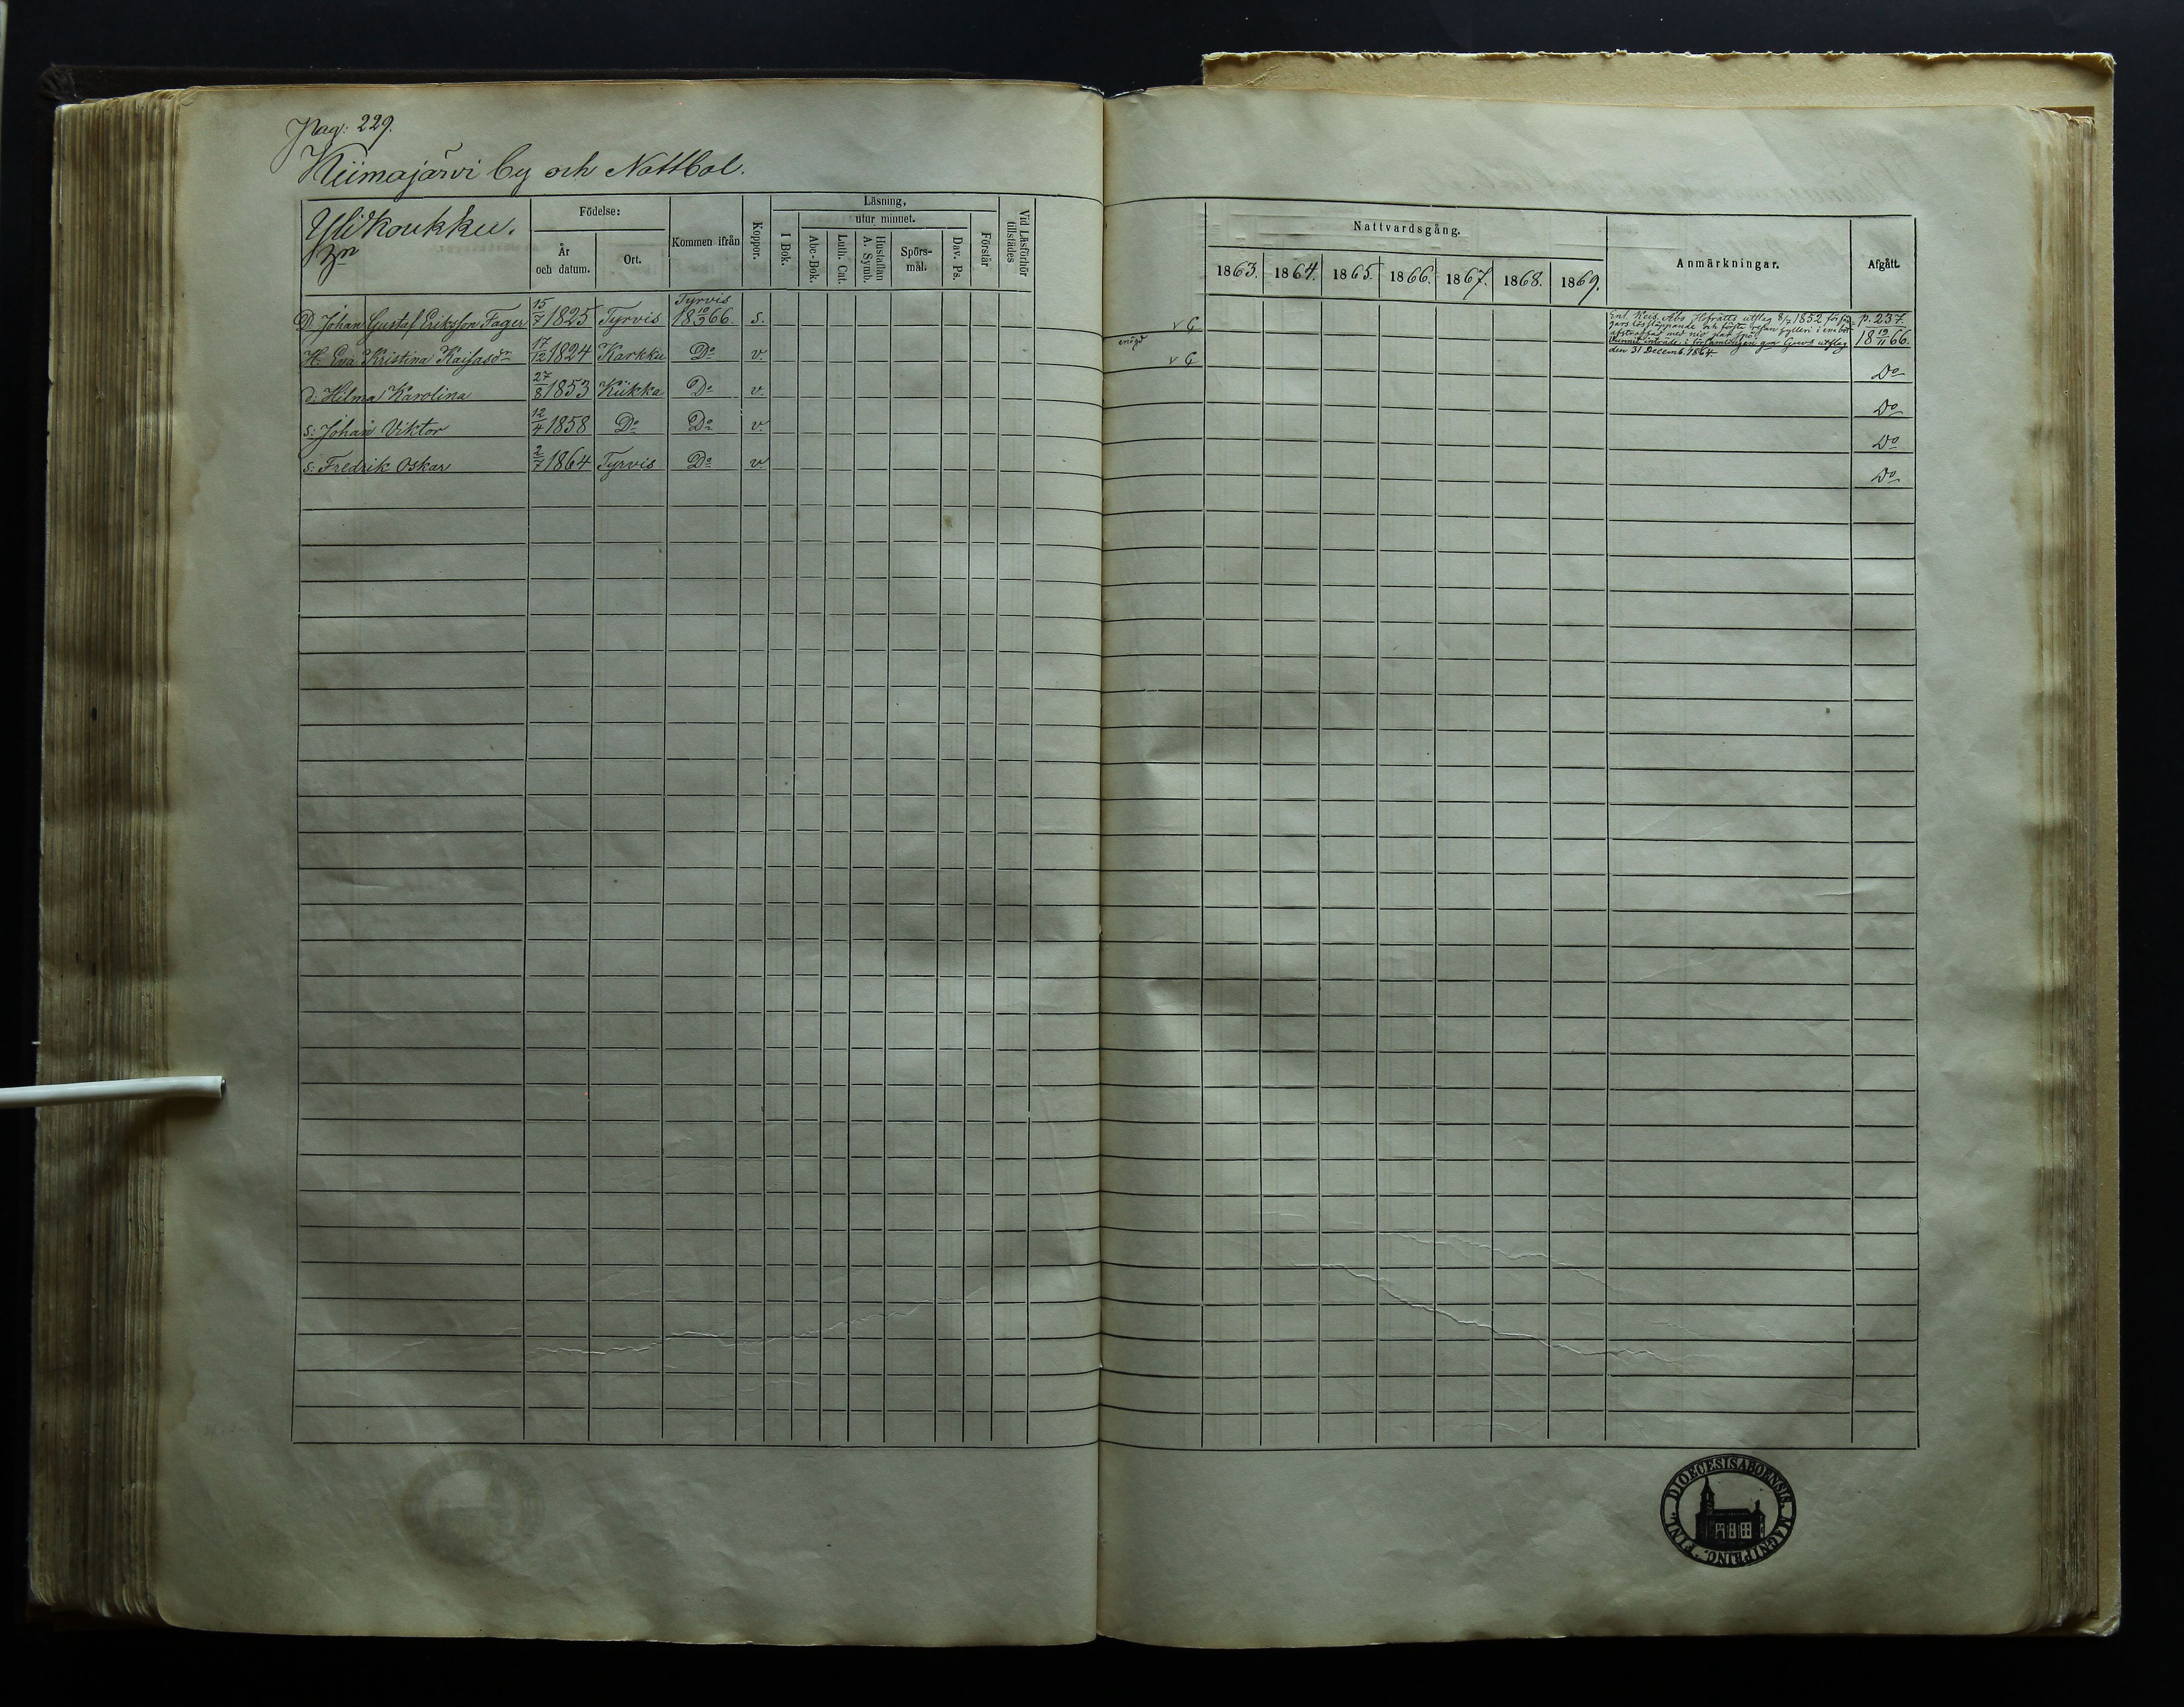 Pag: 229.
Kiimajärvi by och Nattbol.
Ylikoukku.
Födelse:
År och datum.
Ort.
Kommen ifrån
Koppor.
Läsning,
I Bok.
utur minnet.
Abc-Bok.
Luth. Cat.
Hustaflan A. Symb.
Spörs-mål.
Dav. Ps.
Förstår
Vid Läsförhör tillstädes
Nattvardsgång.
1863. 1864. 1865. 1866. 1867. 1868. 1869.
Anmärkningar.
Afgått.
D. Johan Gustaf Eriksson Fager 15/7 1825 Tyrvis Tyrvis 18 10/3 66. s. p. 237 18 19/11 66.
H. Eva Kristina Kaisasdr 17/12 1824 Karkku Do v. Do
d: Hilma Karolina 27/8 1853 Kiikka Do v. Do
s: Johan Viktor 12/4 1858 Do Do v. Do
s: Fredrik Oskar 2/7 1864 Tyrvis Do v Do
Enl. Keis. Åbo Hofrätts utslag 8/7 1852 för
lössläppande och första resan fylleri
afstraffad med nio par spö.
Vunnit inträde i församlingen gm Guvs utslag
den 31 Decemb. 1864.
DIOECESIS ABOENSIS. MAGNI PRINC. FINL.